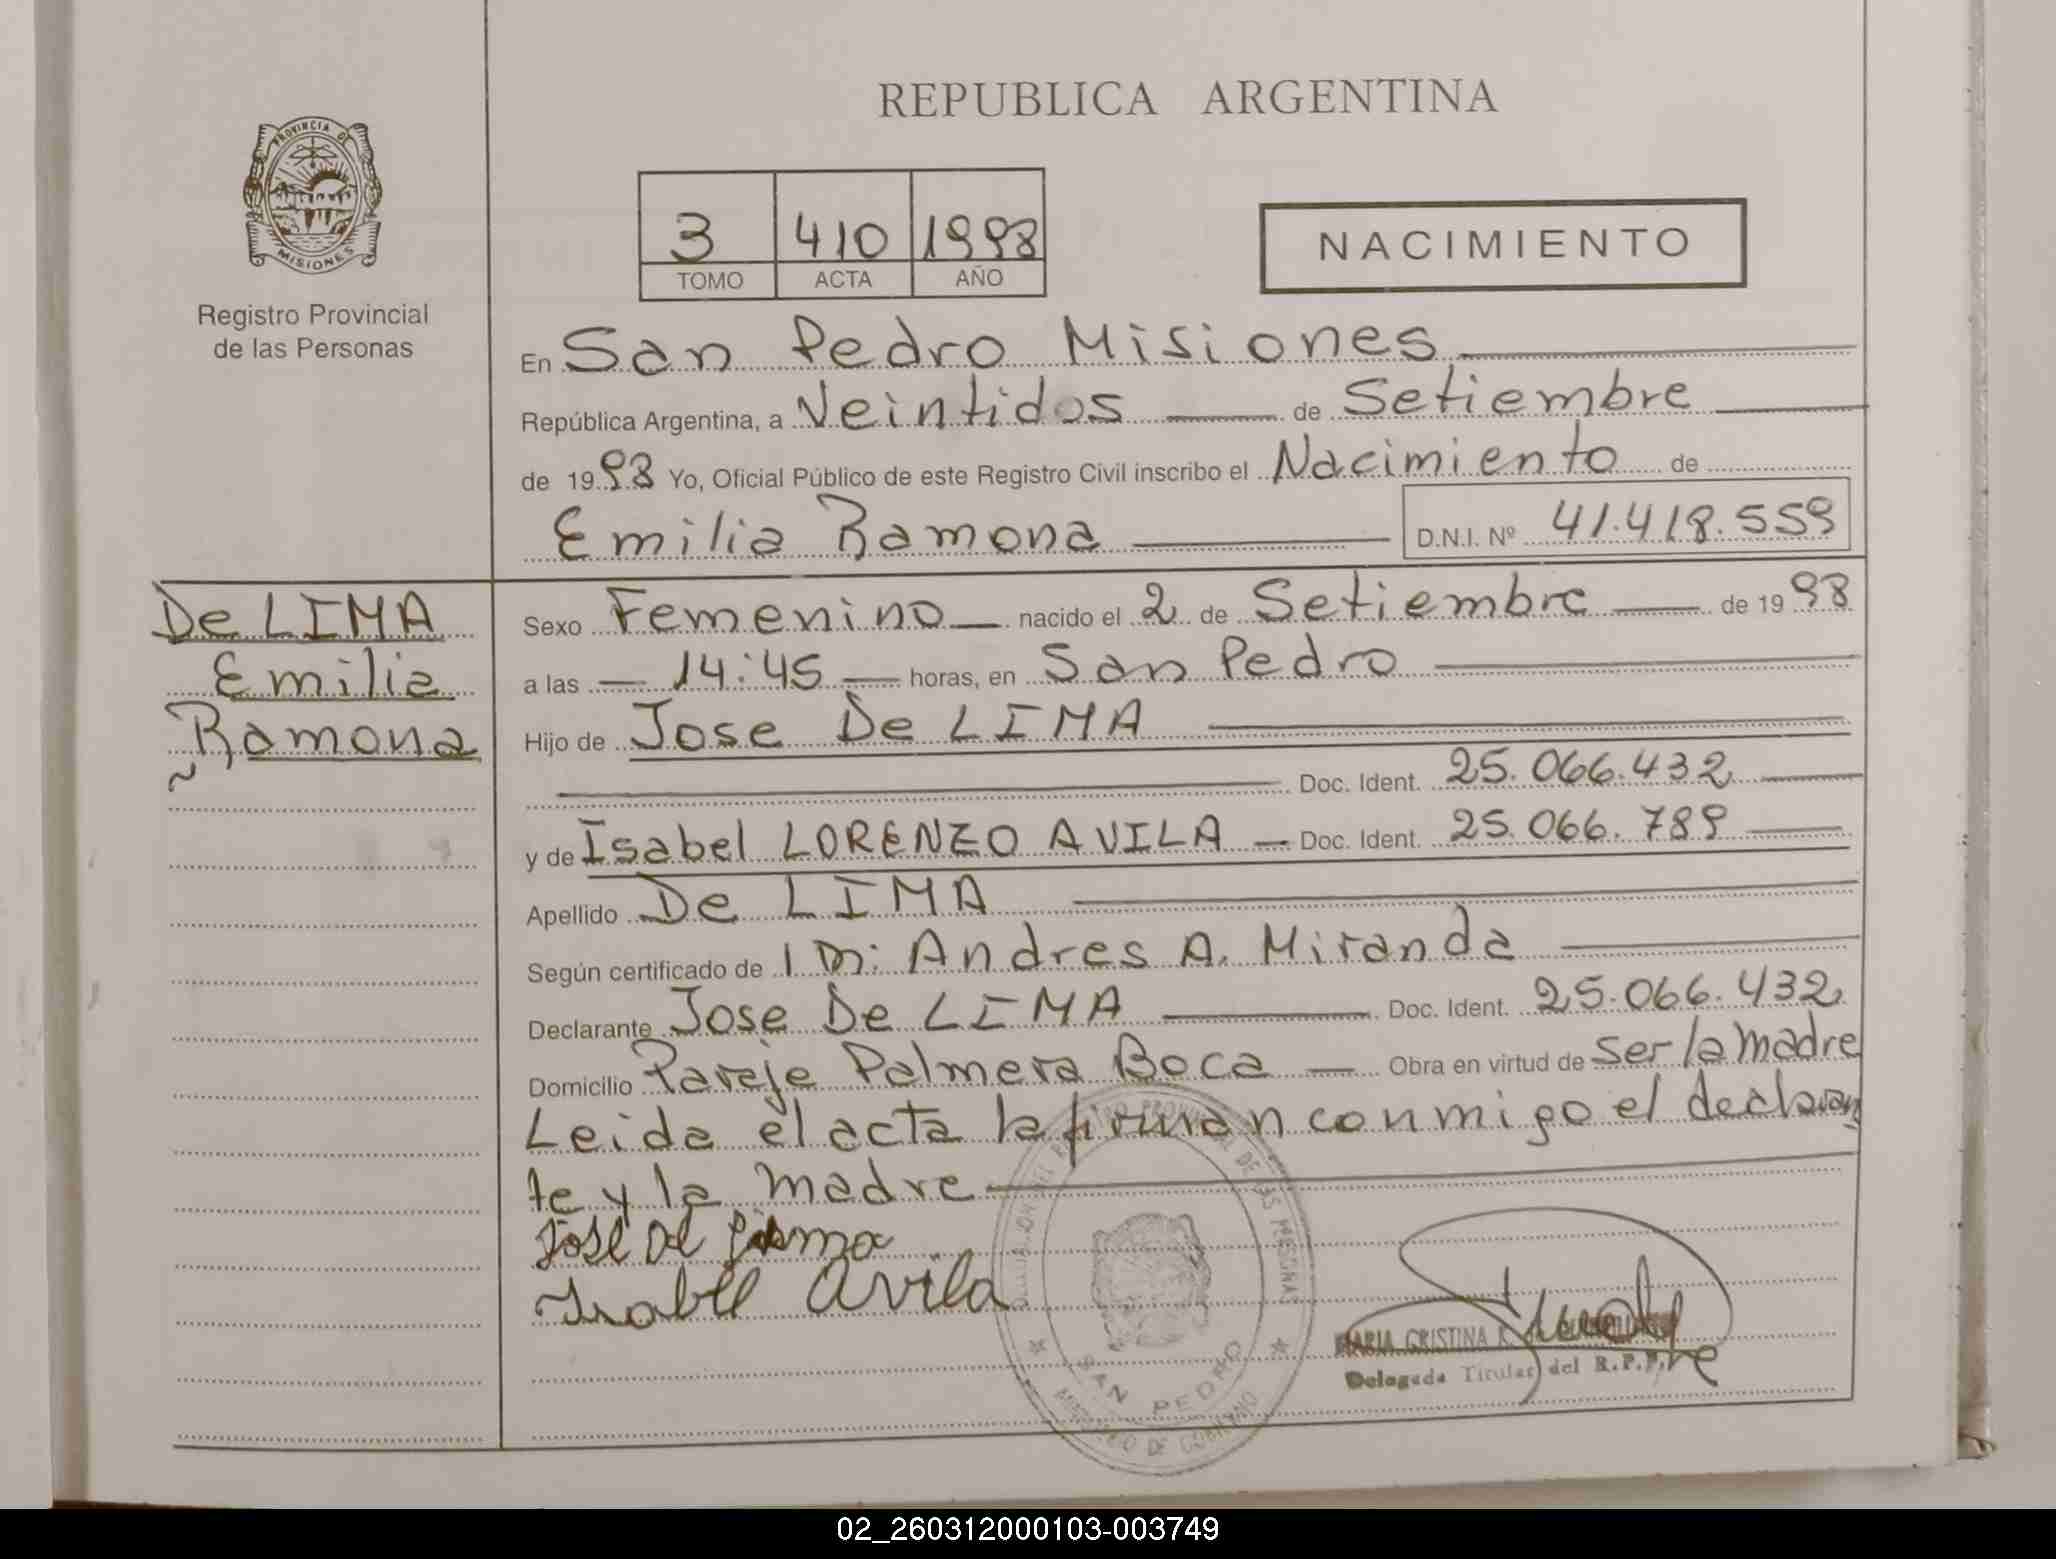 REPUBLICA ARGENTINA
PROVINCIA DE
MISIONES
Registro Provincial
de las Personas
3 410 1998
TOMO ACTA AÑO
NACIMIENTO
En San Pedro Misiones
República Argentina, a Veintidos de Setiembre
de 1998 Yo, Oficial Público de este Registro Civil inscribo el Nacimiento de
Emilia Ramona D.N.I. Nº 41.418.559
De LIMA
Emilia
Ramona
Sexo Femenino nacido el 2 de Setiembre de 1998
a las 14:45 horas, en San Pedro
Hijo de Jose De LIMA
Doc. Ident. 25.066.432
y de Isabel LORENZO AVILA Doc. Ident. 25.066.789
Apellido De LIMA
Según certificado de Andres A. Miranda
Declarante Jose De LIMA Doc. Ident. 25.066.432
Domicilio Paraje Palmera Boca Obra en virtud de Ser la madre
Leida el acta la firman conmigo el declaran
te y la madre
José de Lima
Isabel Avila
SAN PEDRO
MINISTERIO DE GOBIERNO
MARIA CRISTINA
Delegada Titular del R.P.P.
02_260312000103-003749